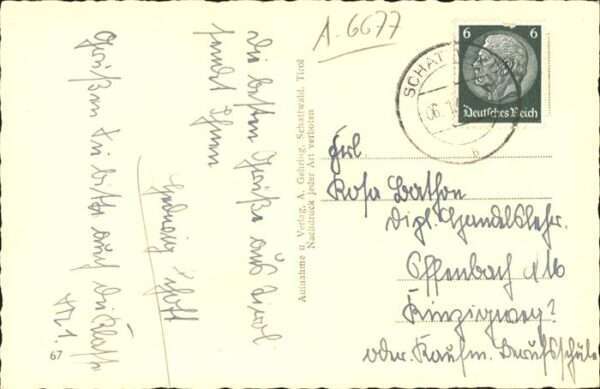 A. 6677
Die besten Grüße aus Tirol
sendet Ihnen
Hedwig Schott
Grüßen Sie bitte auch die Klasse
67
Aufnahme u. Verlag, A. Gehring, Schattwald, Tirol
Nachdruck jeder Art verboten
6 6
Deutsches Reich
SCHAT
06. 1
b
Frl.
Rosa Bathon
Dipl. Handelslehr.
Offenbach a/M
Kinzigweg?
oder Kaufm. Berufsschule